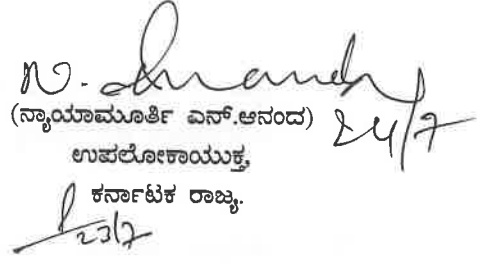 N. Ananda
(ನ್ಯಾಯಾಮೂರ್ತಿ ಎನ್.ಆನಂದ) 24/7
ಉಪಲೋಕಾಯುಕ್ತ,
ಕರ್ನಾಟಕ ರಾಜ್ಯ.
23/7